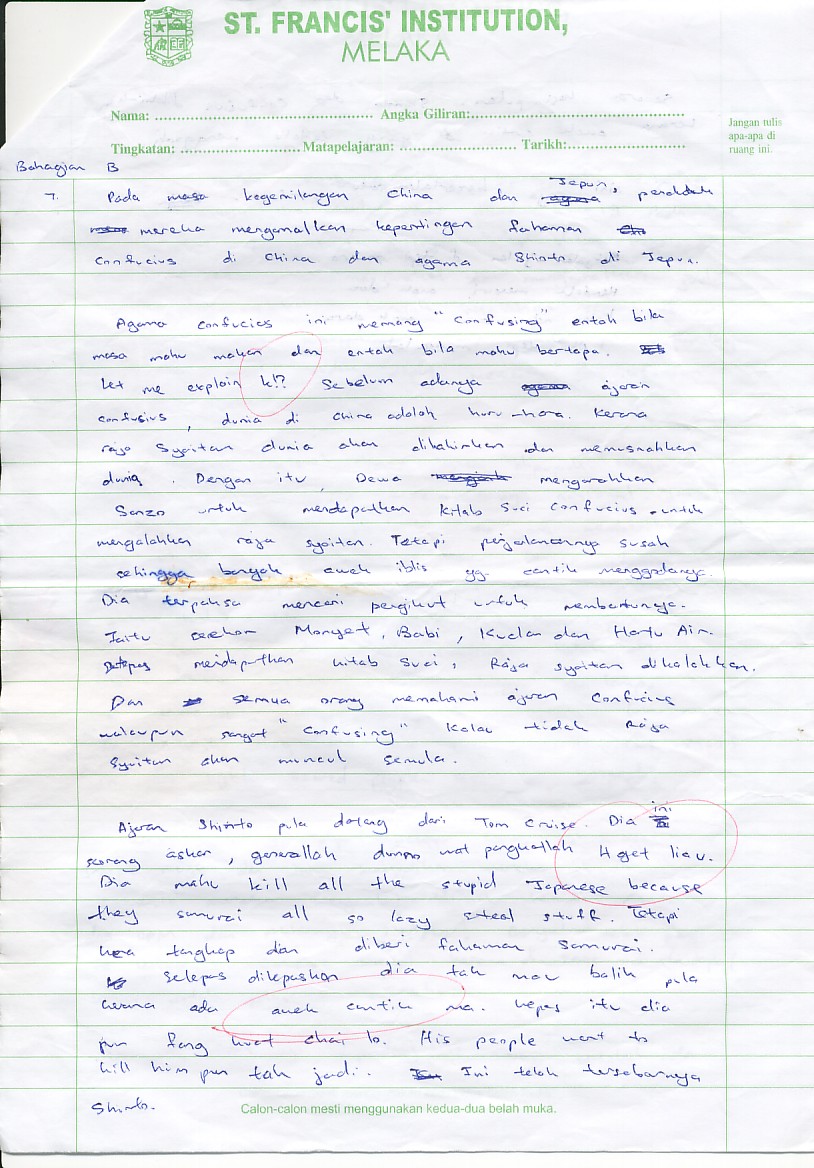 ST. FRANCIS' INSTITUTION,
MELAKA
Nama: ................................................ Angka Giliran:................................................
Jangan tulis
apa-apa di
ruang ini.
Tingkatan: .......................... Matapelajaran: .......................... Tarikh:..........................
Bahagian B
7. Pada masa kegemilangan China dan Jepun, penduduk
mereka mengamalkan kepentingan fahaman
Confucius di China dan agama Shinto di Jepun.
Agama confucius ini memang "Confusing" entah bila
masa mahu makan dan entah bila mahu bertapa.
Let me explain k!? Sebelum adanya ajaran
confusius, dunia di China adalah huru-hara. Kerana
raja Syaitan dunia akan dilahirkan dan memusnahkan
dunia. Dengan itu, Dewa mengarahkan
Sanzo untuk mendapatkan kitab Suci Confucius untuk
mengalahkan raja syaitan. Tetapi perjalanannya susah
sehingga banyak awek iblis yg cantik menggodanya.
Dia terpaksa mencari pengikut untuk membantunya.
Iaitu seekor Monyet, Babi, Kuda dan Hantu Air.
Selepas mendapatkan kitab suci, Raja syaitan dikalahkan.
Dan semua orang memahami ajaran Confucius
walaupun sangat "Confusing" Kalau tidak Raja
Syaitan akan muncul semula.
Ajaran Shinto pula datang dari Tom Cruise. Dia ini
seorang askar, generallah dunno wat pangkatlah I 4get liau.
Dia mahu kill all the stupid Japanese because
they samurai all so lazy steal stuff. Tetapi
kena tangkap dan diberi fahaman samurai.
Selepas dilepaskan dia tak mau balik pula
kerana ada awek cantik ma. Lepas itu dia
pun fang huat chai lo. His people want to
kill him pun tak jadi. Ini telah tersebarnya
Shinto.
Calon-calon mesti menggunakan kedua-dua belah muka.